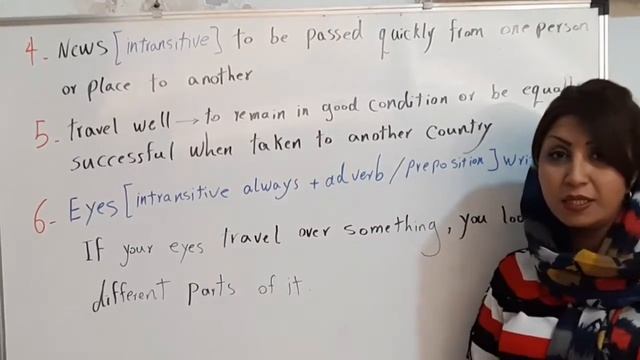 4- News [intransitive] to be passed quickly from one person
or place to another
5- travel well → to remain in good condition or be
successful when taken to another country
6- Eyes [intransitive always + adverb/preposition]
If your eyes travel over something, you
different parts of it.